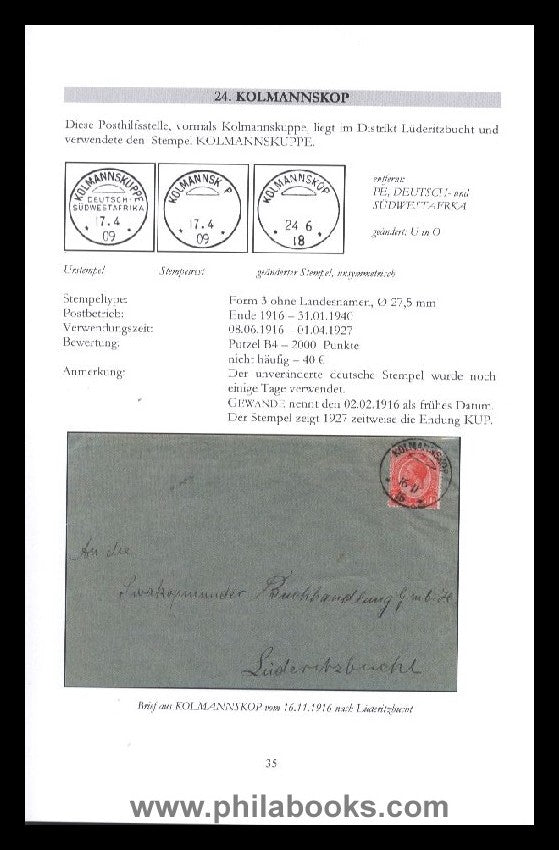 24. KOLMANNSKOP
Diese Posthilfsstelle, vormals Kolmannskuppe, liegt im Distrikt Lüderitzbucht und
verwendete den Stempel KOLMANNSKUPPE.
KOLMANNSKUPPE
DEUTSCH-
SÜDWESTAFRIKA
17.4
09
KOLMANNSK P
17.4
09
KOLMANNSKOP
24 6
18
entfernt:
PE, DEUTSCH- und
SÜDWESTAFRIKA
geändert: U in O
Urstempel
Stempelrest
geänderter Stempel, unsymmetrisch
Stempeltype: Form 3 ohne Landesnamen, Ø 27,5 mm
Postbetrieb: Ende 1916 – 31.01.1940
Verwendungszeit: 08.06.1916 – 01.04.1927
Bewertung: Putzel B4 – 2000 Punkte
nicht häufig – 40 €
Anmerkung: Der unveränderte deutsche Stempel wurde noch
einige Tage verwendet.
GEWANDE nennt den 02.02.1916 als frühes Datum.
Der Stempel zeigt 1927 zeitweise die Endung KUP.
KOLMANNSKOP
16 11
16
An die
Swakopmunder Buchhandlung G.m.b.H
Lüderitzbucht
Brief aus KOLMANNSKOP vom 16.11.1916 nach Lüderitzbucht
35
www.philabooks.com